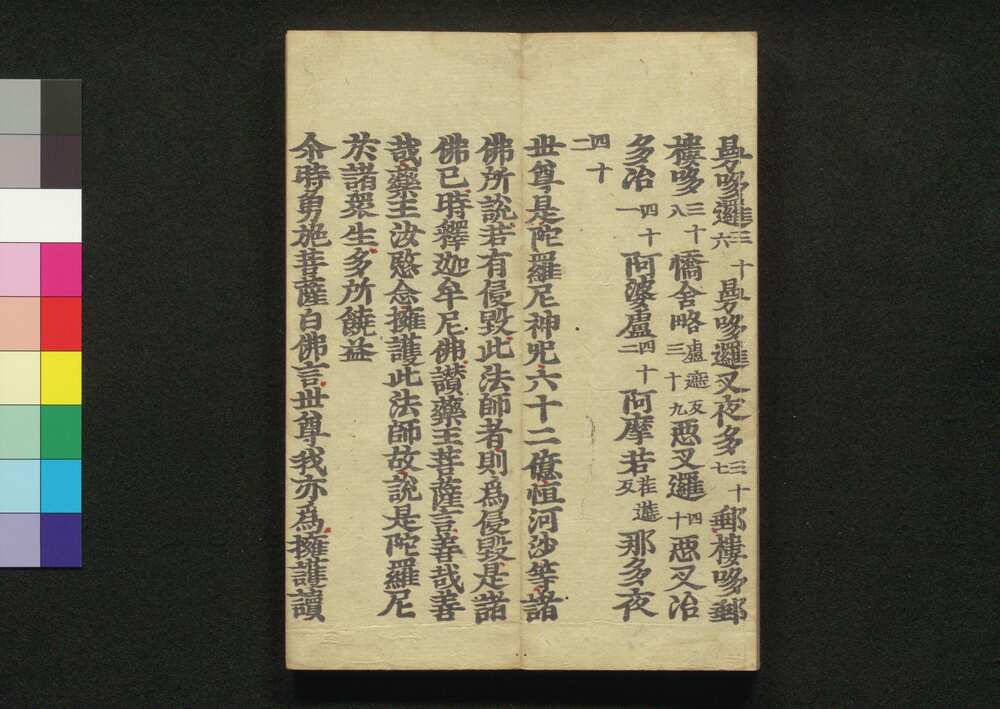 曼哆邏三十六曼哆邏叉夜多三十七郵樓哆郵
樓哆三十八憍舍略盧遮反三十九惡叉邏四十惡叉冶
多冶四十一阿婆盧四十二阿摩若荏遮反那多夜
四十二
世尊是陀羅尼神咒六十二億恒河沙等諸
佛所說若有侵毀此法師者則爲侵毀是諸
佛已時釋迦牟尼佛讃藥王菩薩言善哉善
哉藥王汝愍念擁護此法師故說是陀羅尼
於諸衆生多所饒益
尒時勇施菩薩白佛言世尊我亦爲擁護讀